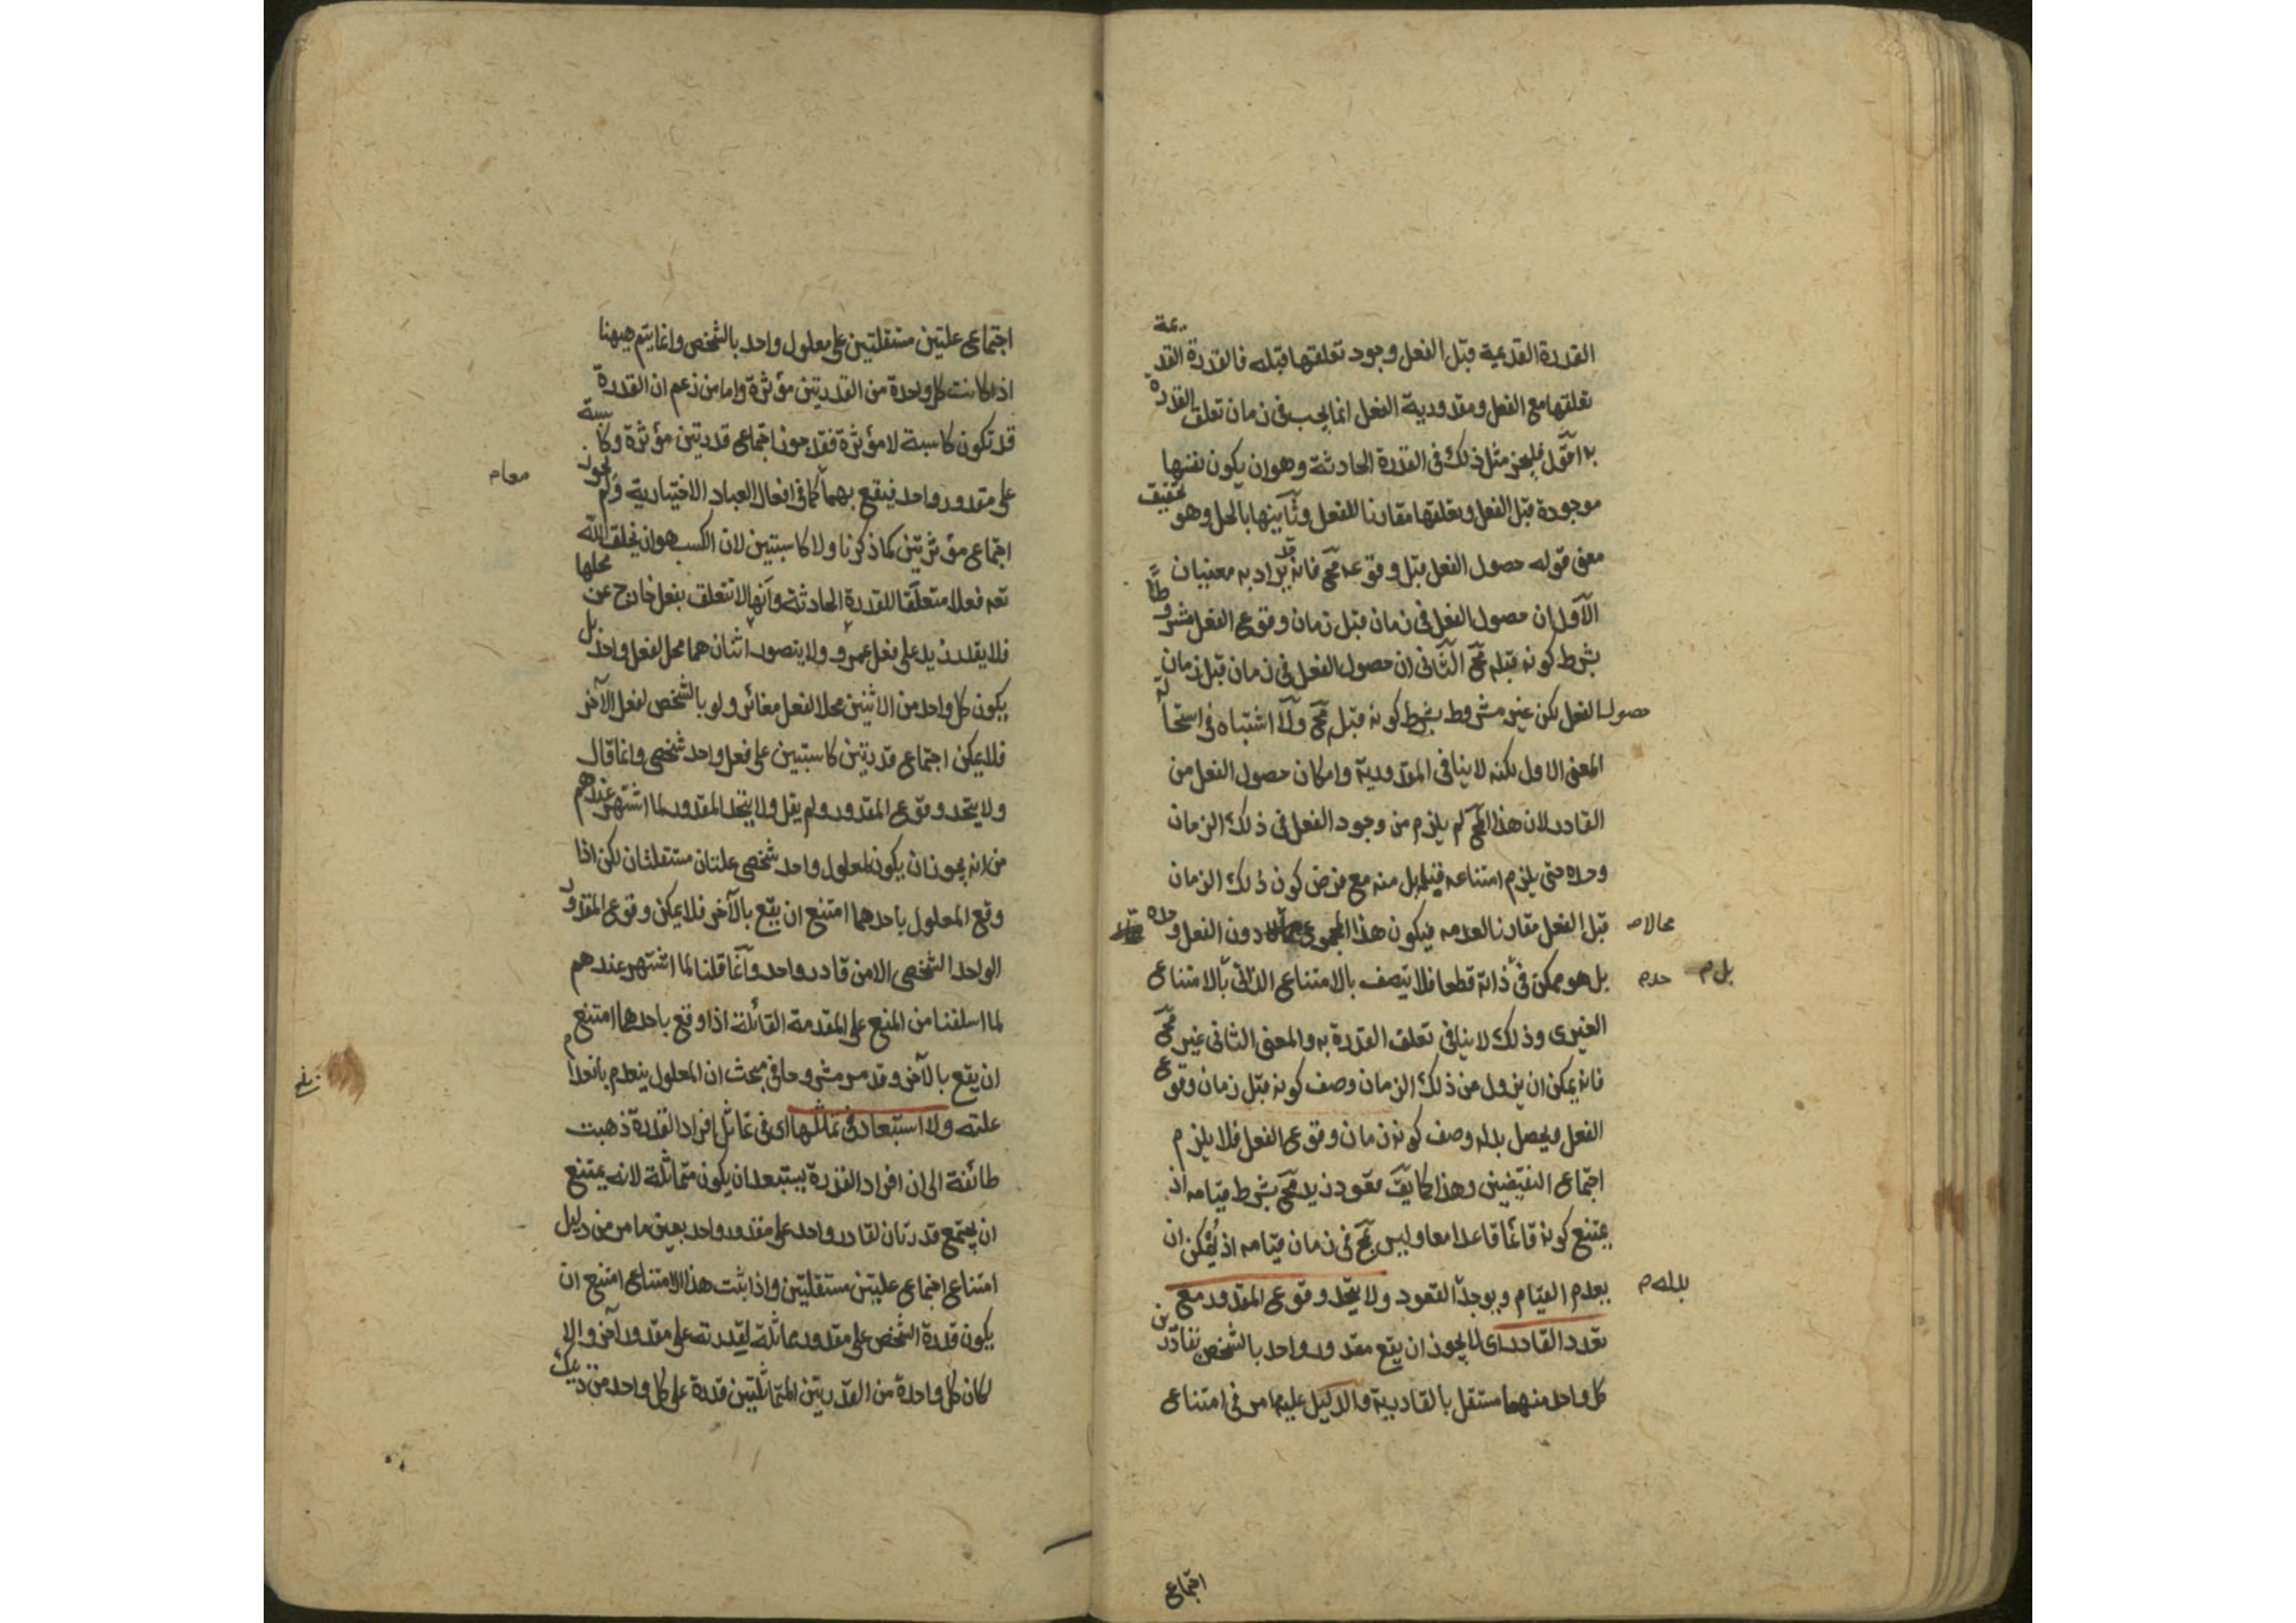 القدرة القديمة قبل الفعل وجود تعلقها قبله فالقدرة القديمة
تعلقها مع الفعل ومقدورية الفعل انما يجب فى زمان تعلق القدرة
به اقول فليجز مثل ذلك فى القدرة الحادثة وهو ان يكون نفسها
موجودة قبل الفعل وتعلقها مقارنا للفعل وثانيها بالحل وهو تحقيق
معنى قوله حصول الفعل قبل وقوعه مح فانه قد يراد به معنيان
الاول ان حصول الفعل فى زمان قبل زمان وقوع الفعل مشروطا
بشرط كونه قبله مح الثانى ان حصول الفعل فى زمان قبل زمان
حصول الفعل لكن غير مشروط بشرط كونه قبل مح ولا اشتباه فى استحالة
المعنى الاول لكنه لا ينافى المقدورية وامكان حصول الفعل من
القادر لان هذا المح لم يلزم من وجود الفعل فى ذلك الزمان
وحده حتى يلزم امتناعه فيه بل منه مع فرض كون ذلك الزمان
قبل الفعل مقارنا لعدمه فيكون هذا المجموع محالا دون الفعل وحده
محالا ص
بل هو ممكن فى ذاته قطعا فلا يتصف بالامتناع الذاتى بالامتناع
حده م
بل م
الغيرى وذلك لا ينافى تعلق القدرة به والمعنى الثانى غير مح
فانه يمكن ان يزول عن ذلك الزمان وصف كونه قبل زمان وقوع
الفعل ويحصل بدله وصف كونه زمان وقوع الفعل فلا يلزم
اجتماع النقيضين وهذا كما يق قعود زيد مح بشرط قيامه اذ
يمتنع كونه قائما قاعدا معا وليس بمح فى زمان قيامه اذ يمكن ان
يعدم القيام ويوجد القعود ولا يتحد وقوع المقدور مع
بدله م
تعدد القادر اى لا يجوز ان يقع مقدور واحد بالشخص بقادرين
كل واحد منهما مستقل بالقادرية والدليل عليه ما مر فى امتناع
اجتماع
اجتماع علتين مستقلتين على معلول واحد بالشخص وانما يتم ههنا
اذا كانت كل واحدة من القدرتين مؤثرة واما من زعم ان القدرة
قد تكون كاسبة لا مؤثرة فقد جوز اجتماع قدرتين مؤثرة وكاسبة
على مقدور واحد فيقع بهما كما فى افعال العباد الاختيارية ولم يجوز
معا م
اجتماع مؤثرتين كما ذكرنا ولا كاسبتين لان الكسب هو ان يخلق الله
تعه فعلا متعلقا للقدرة الحادثة وانها لا تتعلق بفعل خارج عن محلها
فلا يقدر زيد على فعل عمرو ولا يتصور اثنان هما محل لفعل واحد بل
يكون كل واحد من الاثنين محلا لفعل مغائر ولو بالشخص لفعل الآخر
فلا يمكن اجتماع قدرتين كاسبتين على فعل واحد شخصى وانما قال
ولا يتحد وقوع المقدور ولم يقل ولا يتحد المقدور لما اشتهر عندهم
من انه يجوز ان يكون لمعلول واحد شخصى علتان مستقلتان لكن اذا
وقع المعلول باحدهما امتنع ان يقع بالآخر فلا يمكن وقوع المقدور
الواحد الشخصى الا من قادر واحد وانما قلنا لما اشتهر عندهم
لما اسلفنا من المنع على المقدمة القائلة اذا وقع باحدهما امتنع
ان يقع بالآخر وقد مر مشروحا فى مبحث ان المعلول ينعدم بانعدام
علته ولا استبعاد فى تماثلها اى فى تماثل افراد القدرة ذهبت
طائفة الى ان افراد القدرة يستبعد ان يكون متماثلة لانه يمتنع
ان يجتمع قدرتان لقادر واحد على مقدور واحد بعين ما مر من دليل
امتناع اجتماع علتين مستقلتين واذا ثبت هذا الامتناع امتنع ان
يكون قدرة الشخص على مقدور مماثلة لقدرته على مقدور آخر والا
لكان كل واحدة من القدرتين المتماثلتين قدرة على كل واحد من ذينك